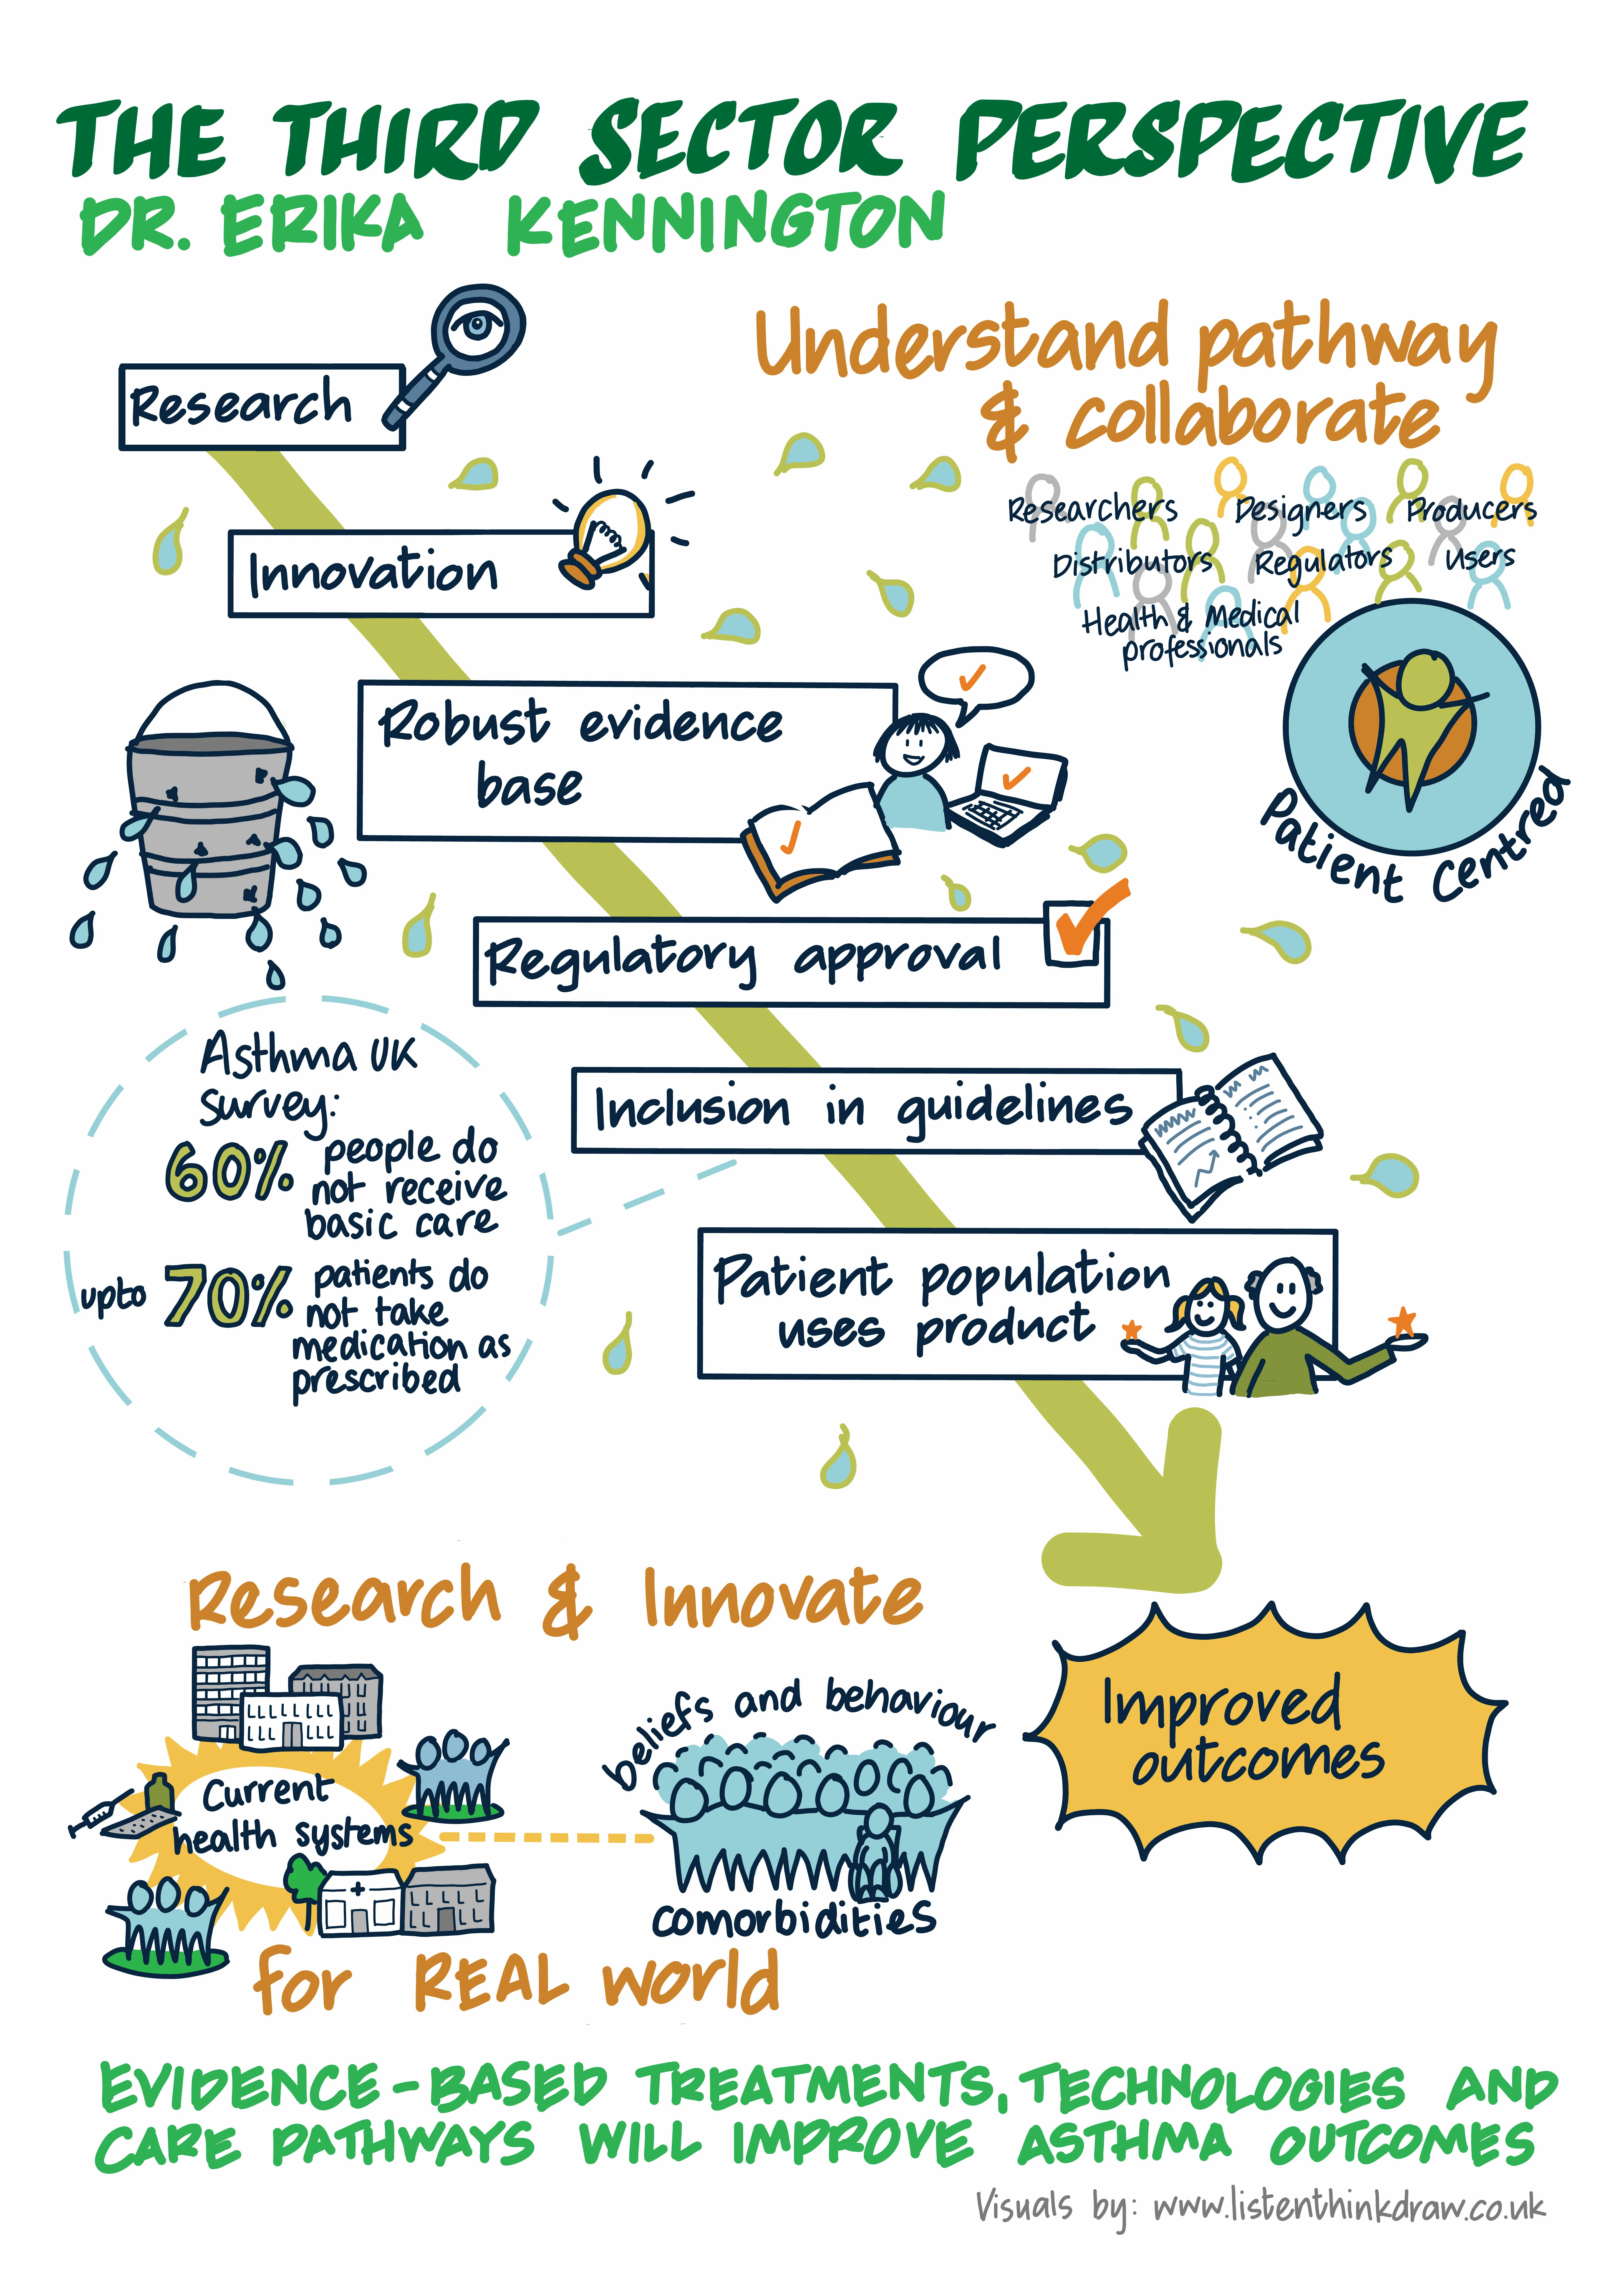 THE THIRD SECTOR PERSPECTIVE
DR. ERIKA KENNINGTON
Research
Understand pathway
& collaborate
Researchers Designers Producers
Distributors Regulators Users
Health & Medical
professionals
Patient Centred
Innovation
Robust evidence
base
Regulatory approval
Inclusion in guidelines
Patient population
uses product
Asthma UK
Survey:
60% people do
not receive
basic care
upto 70% patients do
not take
medication as
prescribed
Improved
outcomes
Research & Innovate
Current
health systems
beliefs and behaviour
comorbidities
for REAL world
EVIDENCE-BASED TREATMENTS, TECHNOLOGIES AND
CARE PATHWAYS WILL IMPROVE ASTHMA OUTCOMES
Visuals by: www.listenthinkdraw.co.uk